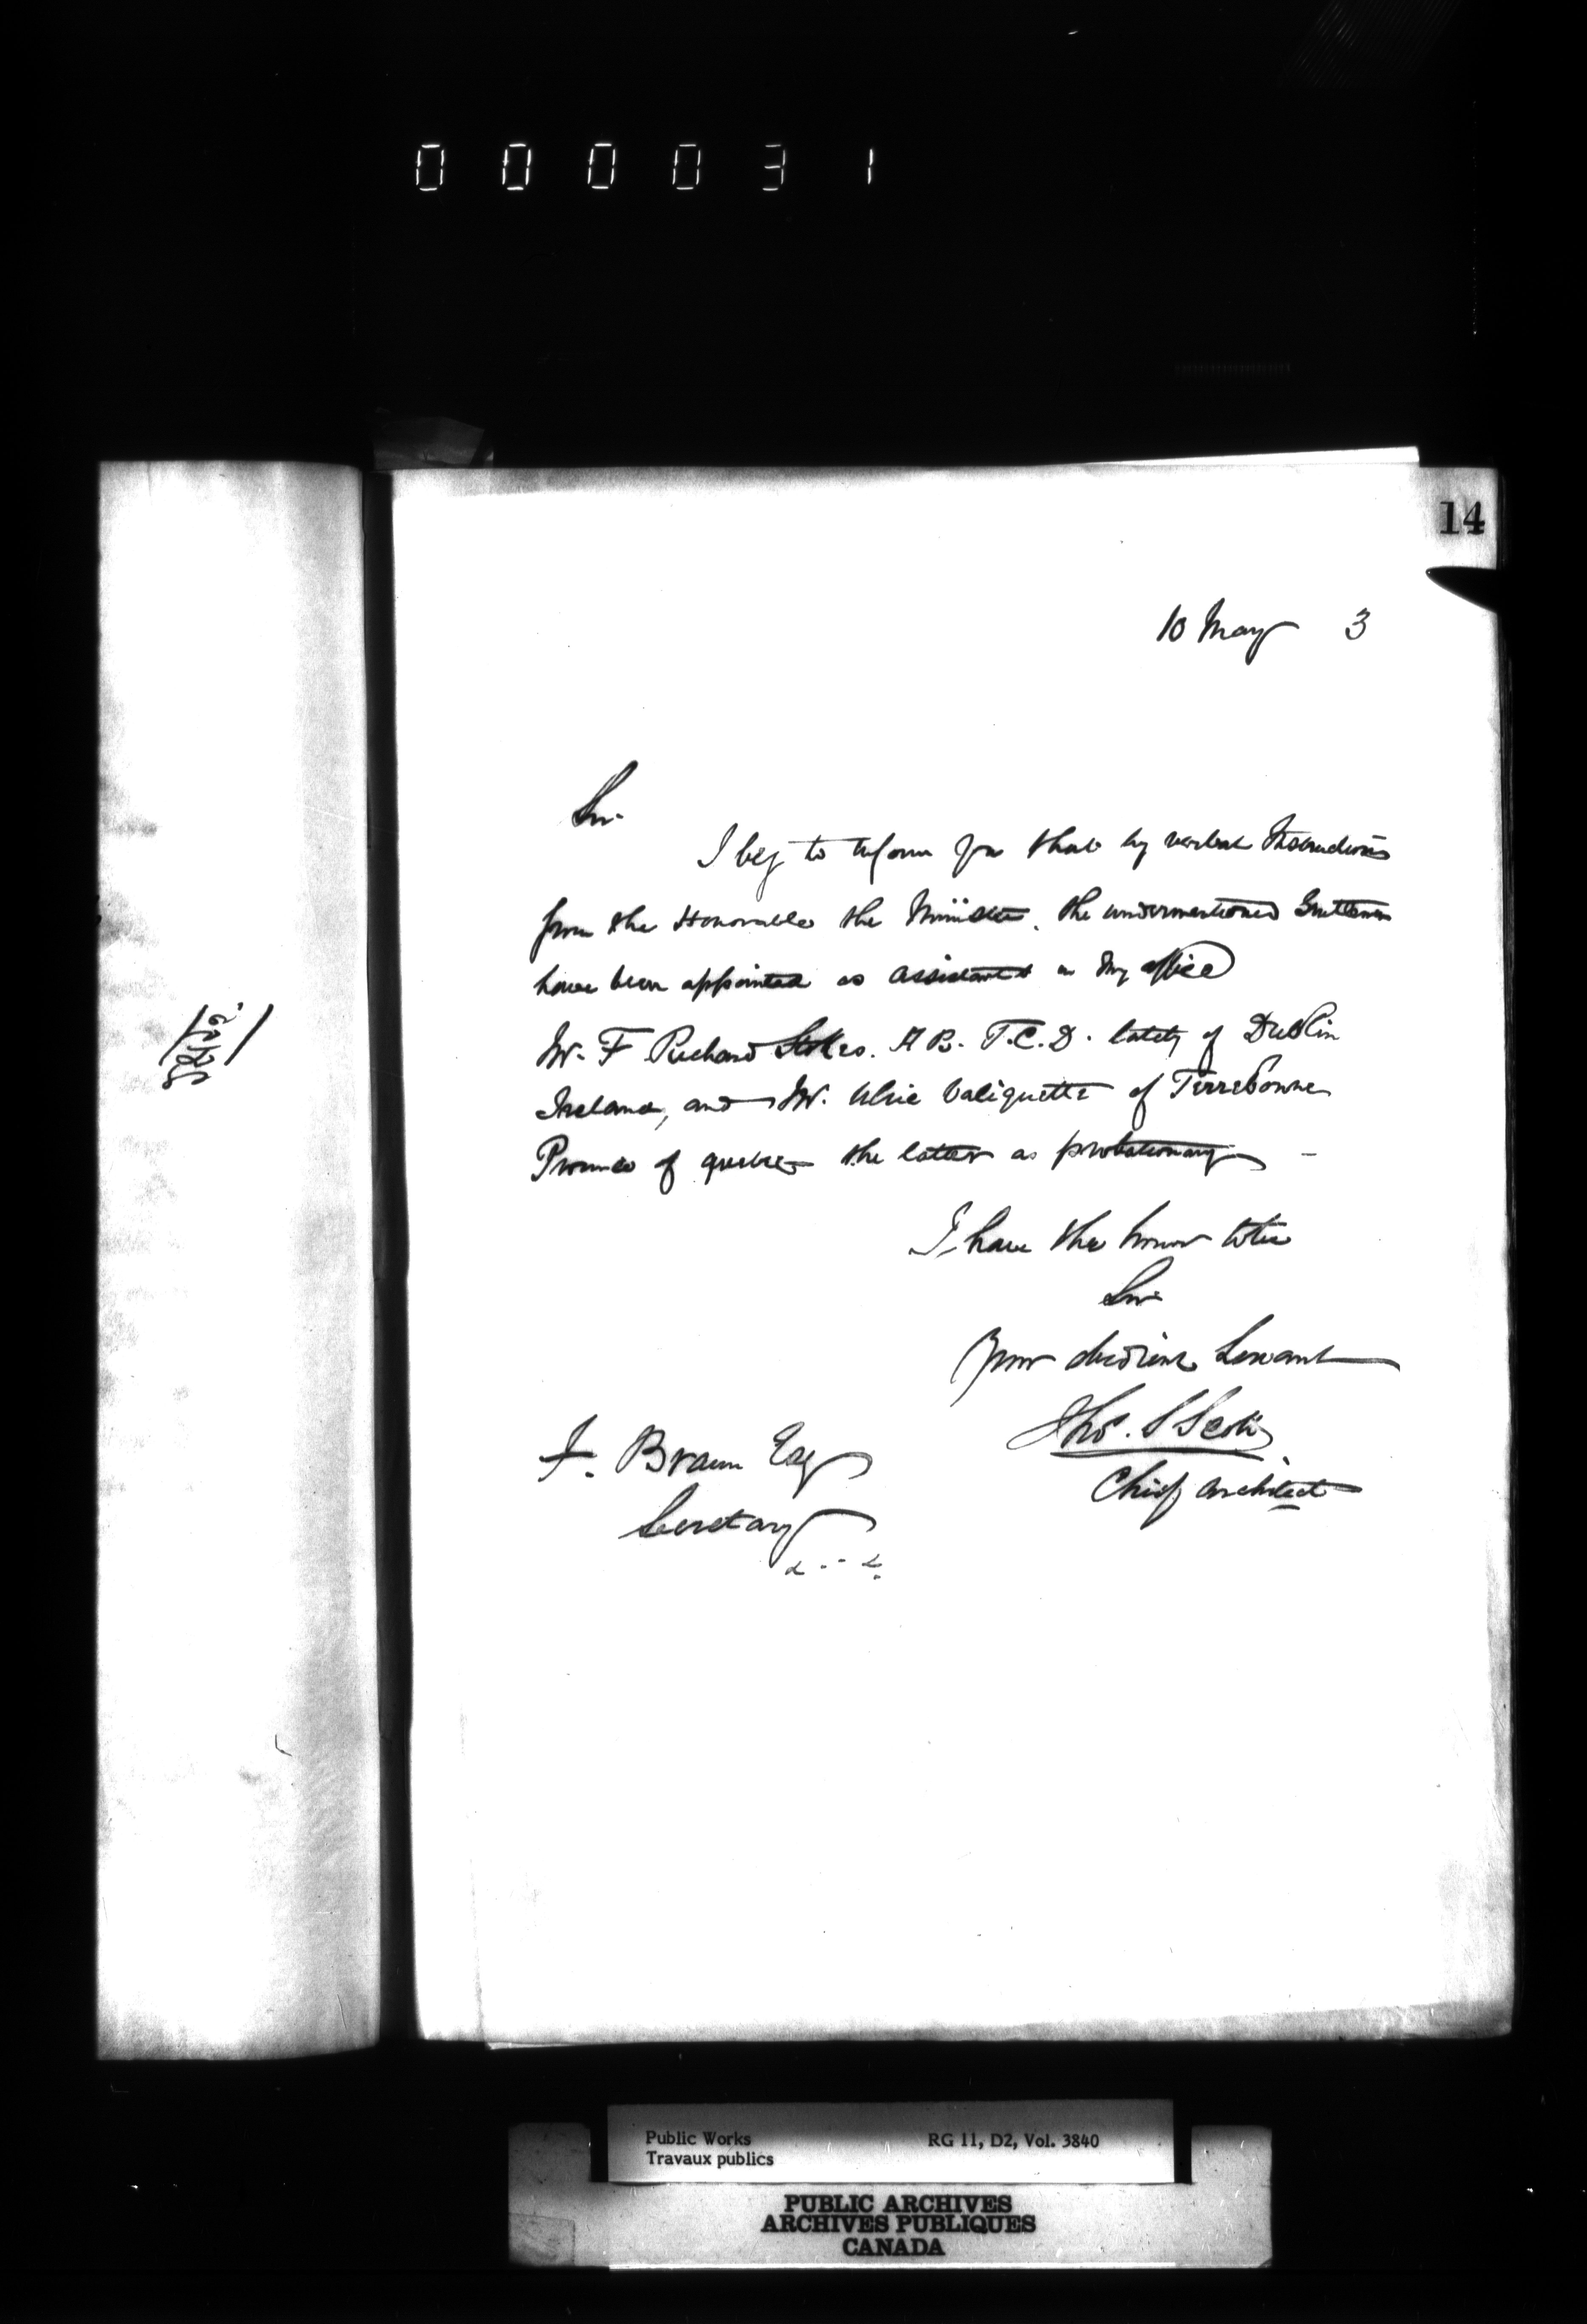 000031
14
10 May 3
Sir
I beg to inform you that by verbal Instructions
from the Honorable the Minister. the undermentioned Gentlemen
have been appointed as assistants in my office
Mr. F Richard Stokes. A B. T.C.D. lately of Dublin
Ireland, and Mr. Ulric Valiquette of Terrebonne
Province of Quebec the latter as probationary -
I have the honor to be
Sir
Your obedient Servant
Thos. S Scott
Chief Architect
F. Braun Esq
Secretary
Public Works RG 11, D2, Vol. 3840
Travaux publics
PUBLIC ARCHIVES
ARCHIVES PUBLIQUES
CANADA